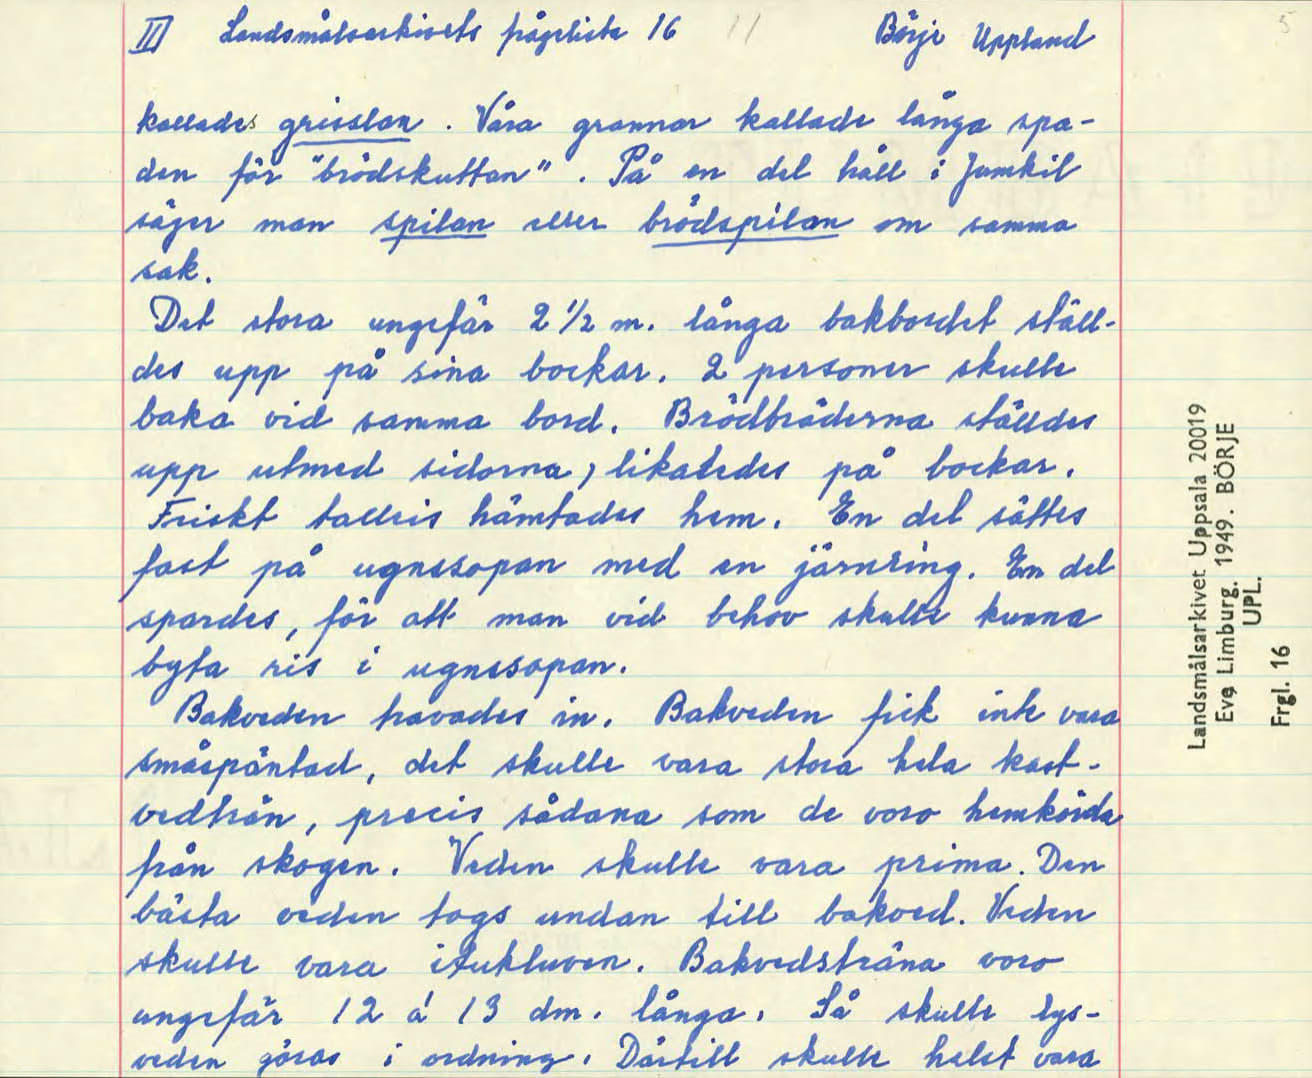 II Landsmålsarkivets frågelista 16 11 Börje Uppland 5
kallades grisslan. Våra grannar kallade långa spa-
den för "brödskuttan". På en del håll i Jumkil
säger man spilan eller brödspilan om samma
sak.
Det stora ungefär 2 1/2 m. långa bakbordet ställ-
des upp på sina bockar. 2 personer skulle
baka vid samma bord. Brödbräderna ställdes
upp utmed sidorna, likaledes på bockar.
Friskt tallris hämtades hem. En del sattes
fast på ugnssopan med en järnring. En del
spardes, för att man vid behov skulle kunna
byta ris i ugnssopan.
Bakveden travades in. Bakveden fick inte vara
småspäntad, det skulle vara stora hela kast-
vedträn, precis sådana som de voro hemkörda
från skogen. Veden skulle vara prima. Den
bästa veden togs undan till bakved. Veden
skulle vara itukluven. Bakvedsträna voro
ungefär 12 á 13 dm. långa. Så skulle lys-
veden göras i ordning. Därtill skulle helst vara
Landsmålsarkivet Uppsala 20019
Eva Limburg. 1949. BÖRJE
UPL.
Frgl. 16